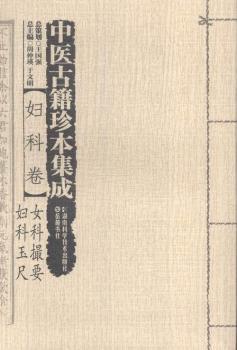 中医古籍珍本集成
总策划◎王国强
总主编◎周仲瑛 于文明
【妇科卷】
女科撮要
妇科玉尺
湖南科学技术出版社
岳麓书社